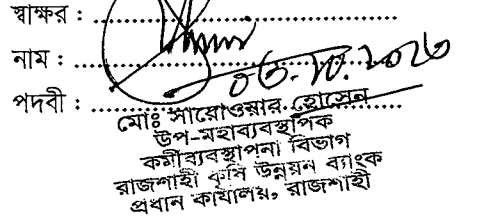 স্বাক্ষর :
নাম :
পদবী :
মোঃ সারোওয়ার হোসেন
উপ-মহাব্যবস্থাপক
কর্মীব্যবস্থাপনা বিভাগ
রাজশাহী কৃষি উন্নয়ন ব্যাংক
প্রধান কার্যালয়, রাজশাহী